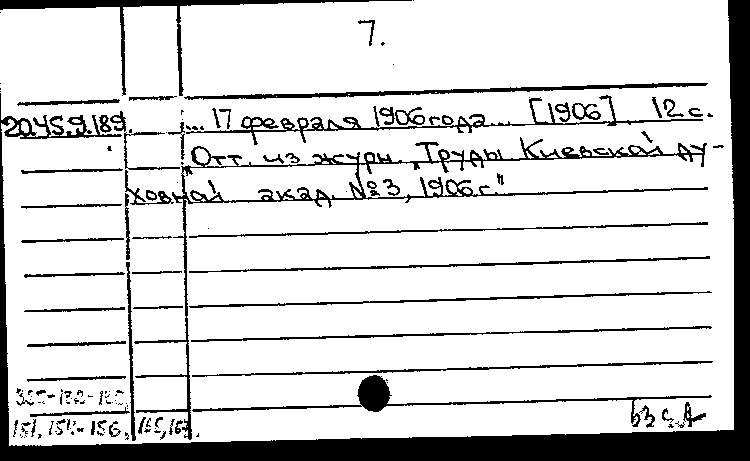 7.
20.45.9.189. ... 17 февраля 1906 года... [1906] 12 с.
"Отт. из журн. "Труды Киевской ду-
ховной акад. №3, 1906 г."
151, 154-156, 165, 167.